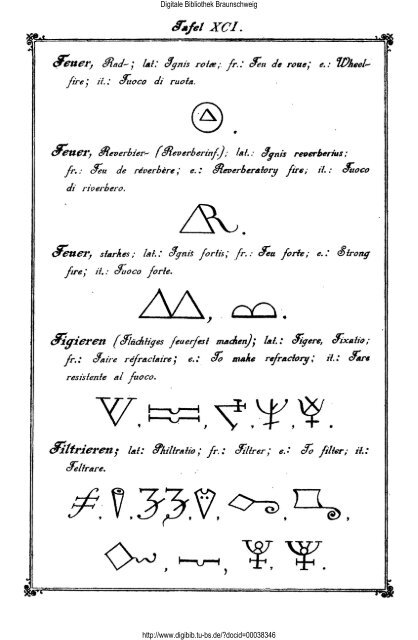 Digitale Bibliothek Braunschweig
Tafel XCI.
Feuer, Rad-; lat: Ignis rotæ; fr.: Feu de roue; e.: Wheel-
fire; it.: Fuoco di ruota.
Feuer, Reverbier- (Reverberinf.); lat.: Ignis reverberius;
fr.: Feu de réverbère; e.: Reverberatory fire; it.: Fuoco
di riverbero.
Feuer, starkes; lat.: Ignis fortis; fr.: Feu forte; e.: Strong
fire; it.: Fuoco forte.
Figieren (Flüchtiges feuerfest machen); lat.: Figere, Fixatio;
fr.: Faire réfractaire; e.: To make refractory; it.: Fare
resistente al fuoco.
Filtrieren; lat: Philtratio; fr.: Filtrer; e.: To filter; it.:
Feltrare.
http://www.digibib.tu-bs.de/?docid=00038346